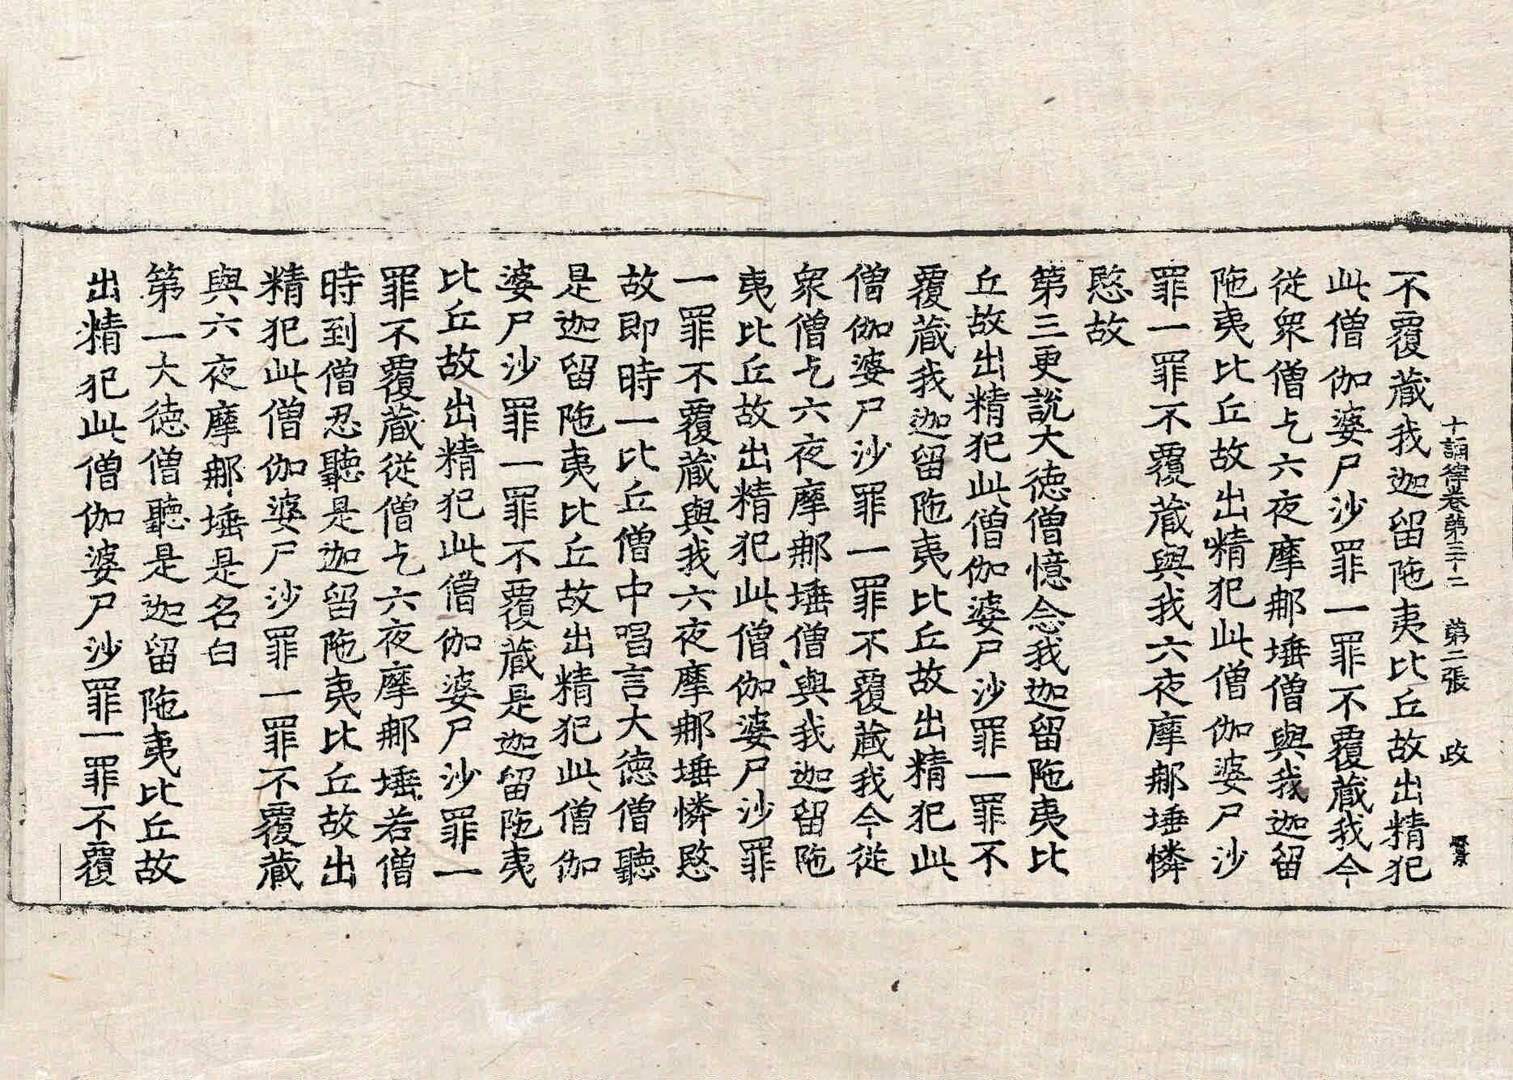 十誦律卷第三十二 第二張 政
不覆藏我迦留陁夷比丘故出精犯
此僧伽婆尸沙罪一罪不覆藏我今
從衆僧乞六夜摩那埵僧與我迦留
陁夷比丘故出精犯此僧伽婆尸沙
罪一罪不覆藏與我六夜摩那埵憐
愍故
第三更說大德僧憶念我迦留陁夷比
丘故出精犯此僧伽婆尸沙罪一罪不
覆藏我迦留陁夷比丘故出精犯此
僧伽婆尸沙罪一罪不覆藏我今從
衆僧乞六夜摩那埵僧與我迦留陁
夷比丘故出精犯此僧伽婆尸沙罪
一罪不覆藏與我六夜摩那埵憐愍
故即時一比丘僧中唱言大德僧聽
是迦留陁夷比丘故出精犯此僧伽
婆尸沙罪一罪不覆藏是迦留陁夷
比丘故出精犯此僧伽婆尸沙罪一
罪不覆藏從僧乞六夜摩那埵若僧
時到僧忍聽是迦留陁夷比丘故出
精犯此僧伽婆尸沙罪一罪不覆藏
與六夜摩那埵是名白
第一大德僧聽是迦留陁夷比丘故
出精犯此僧伽婆尸沙罪一罪不覆